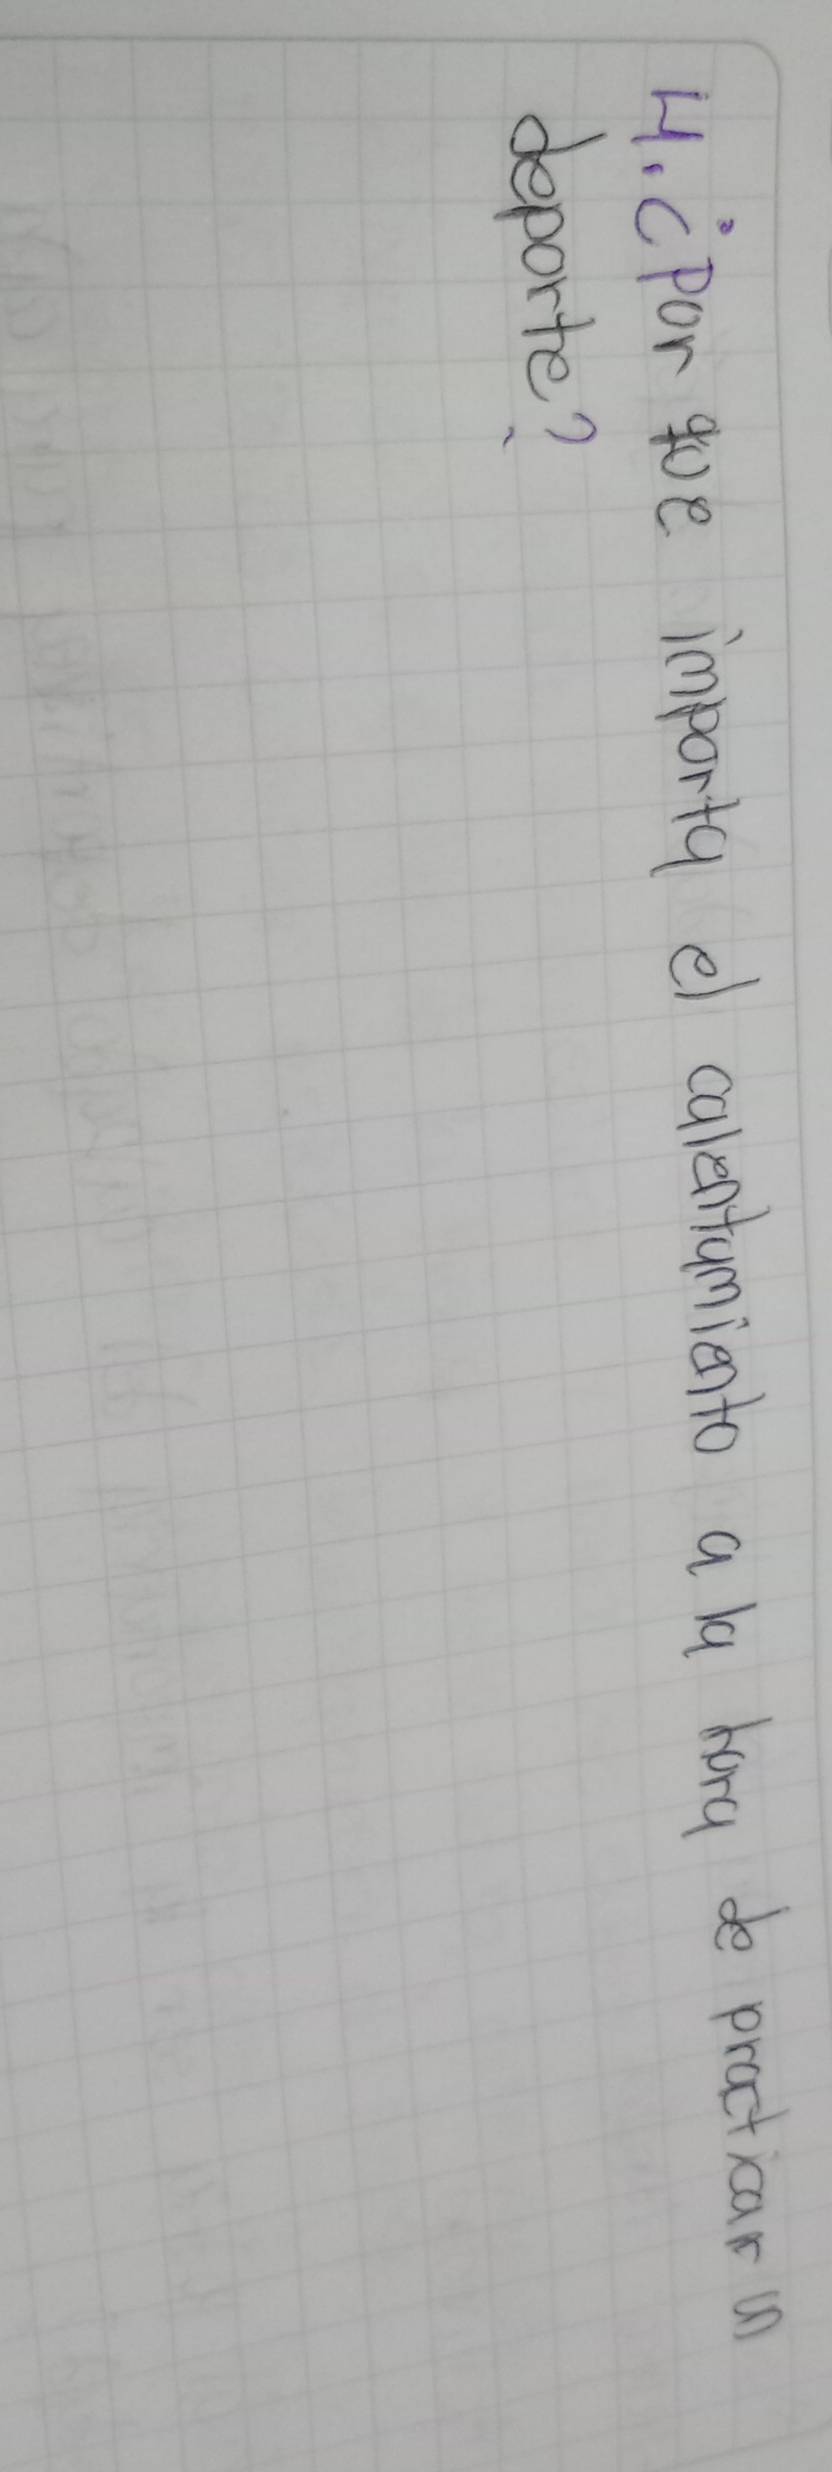 4. ¿Por que importa el calentamiento a la hora de practicar un
deporte?